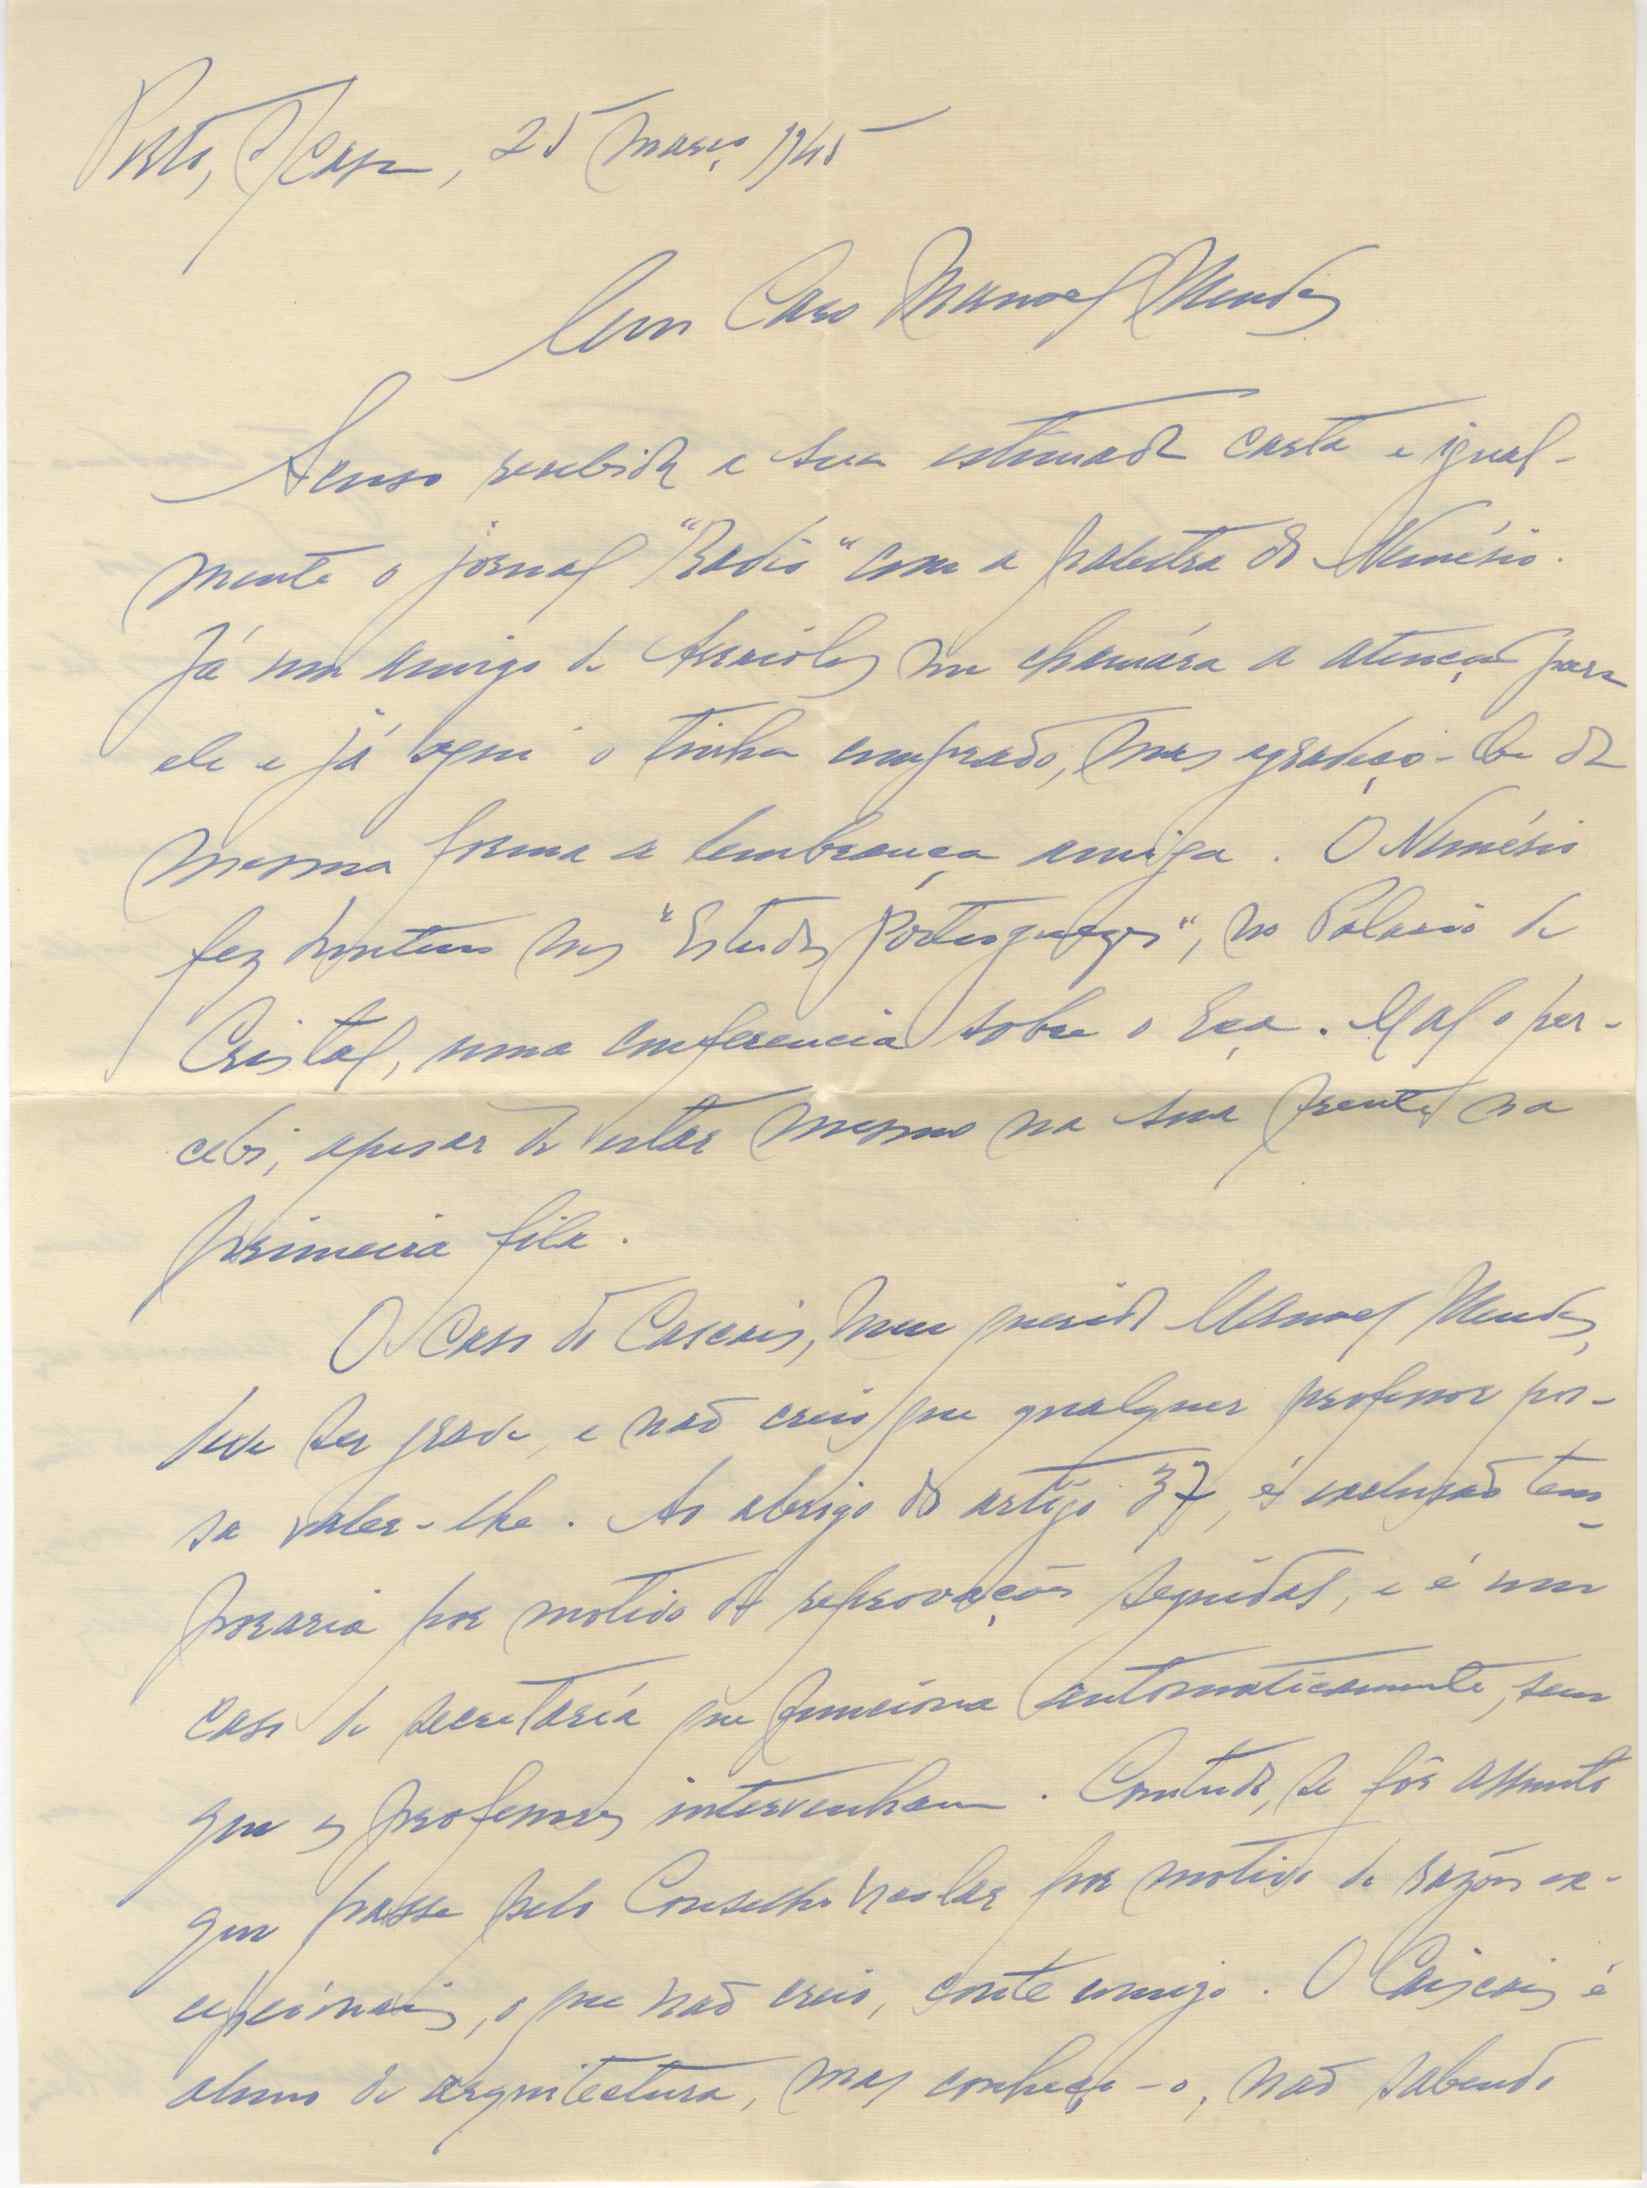 Porto, s/ casa, 25 março 1945
Meu Caro Manoel Mendes
Acuso recebida a sua estimada carta e igual-
mente o jornal "Radio" com a palestra do Nemésio.
Já um amigo de Arraiolos me chamára a atenção para
ele e já aqui o tinha comprado, mas agradeço-lhe da
mesma forma a lembrança amiga. O Nemésio
fez hontem nos "Estudos Portuguezes", no Palacio de
Cristal, uma conferencia sobre o Eça. Mal o per-
cebi, apesar de estar mesmo na sua frente na
primeira fila.
O caso do Cascais, meu querido Manoel Mendes,
deve ser grave, e não creio que qualquer professor pos-
sa valer-lhe. Ao abrigo do artigo 37, é exclusão tem-
poraria por motivo de reprovações seguidas, e é um
caso de secretaría que funciona automaticamente, sem
que os professores intervenham. Contudo, se fôr assunto
que passe pelo Conselho Escolar por motivo de razões ex-
cepcionais, o que não creio, conte comigo. O Cascais é
aluno de arquitectura, mas conheço-o, não sabendo